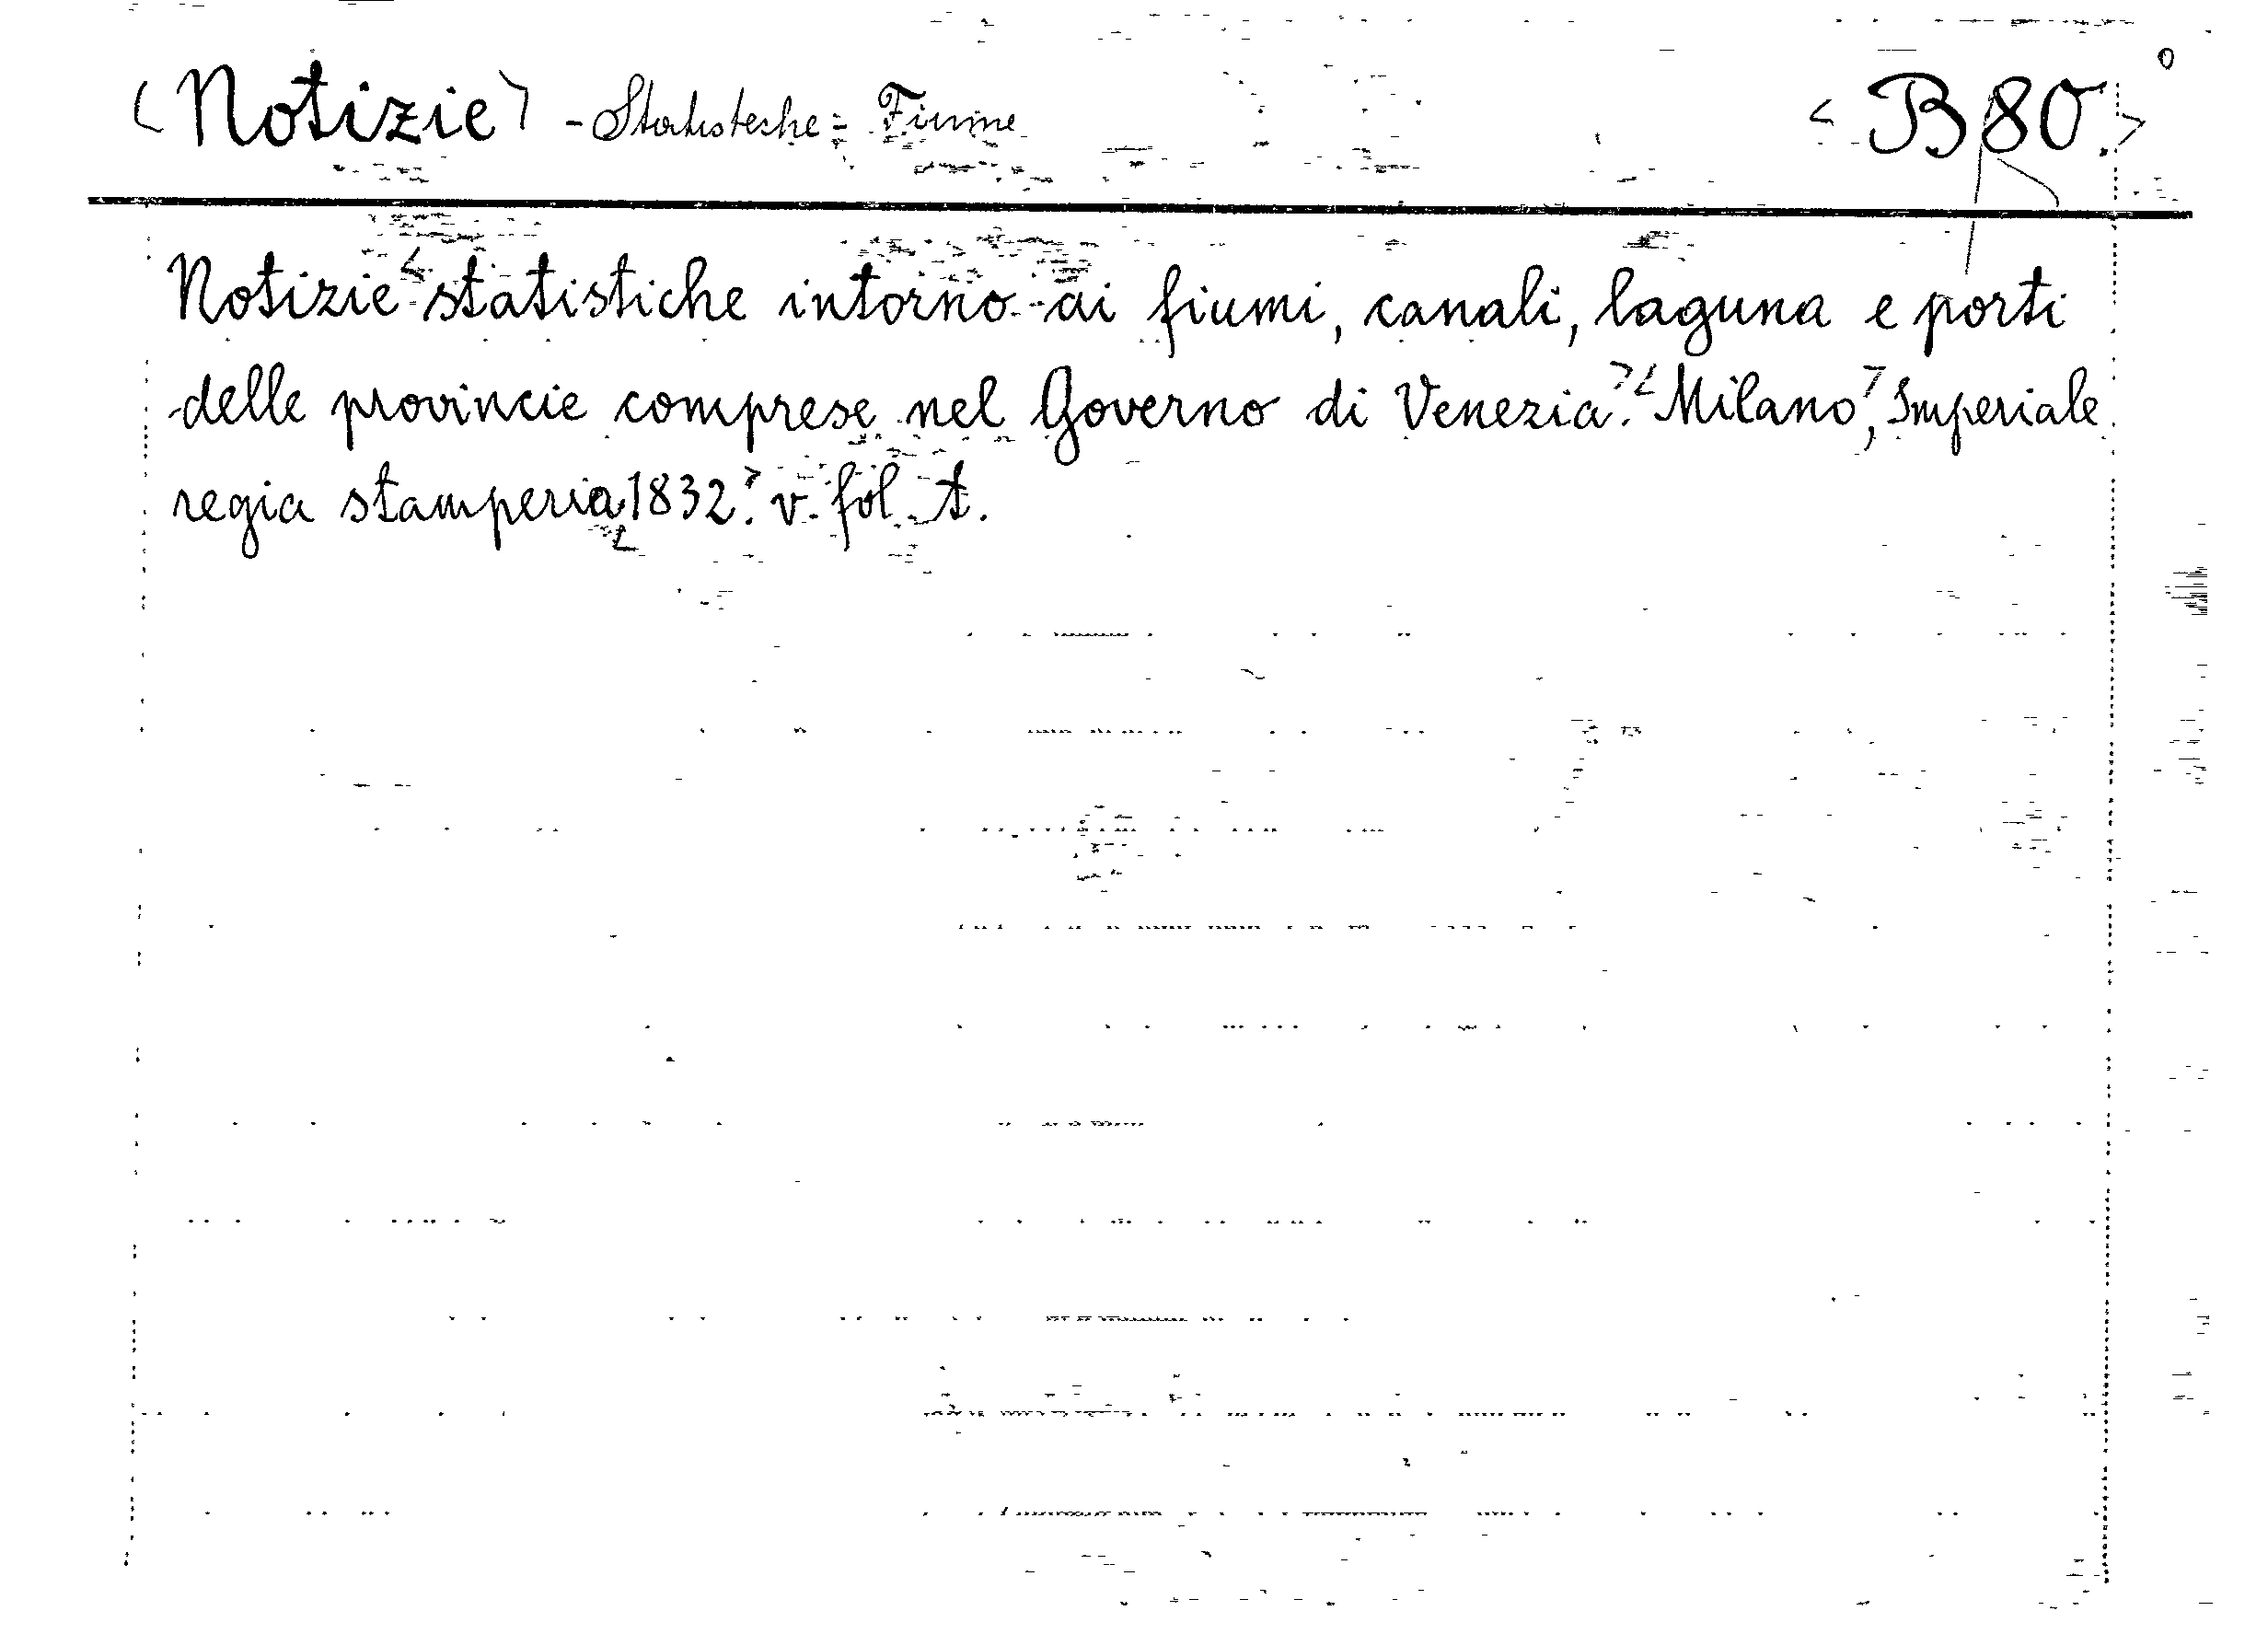 <Notizie> - Statisteche = Fiume <B 80.>
Notizie <statistiche intorno ai fiumi, canali, laguna e porti
delle provincie comprese nel Governo di Venezia>. <Milano>, Imperiale
regia stamperia, <1832>. v. fol. t.